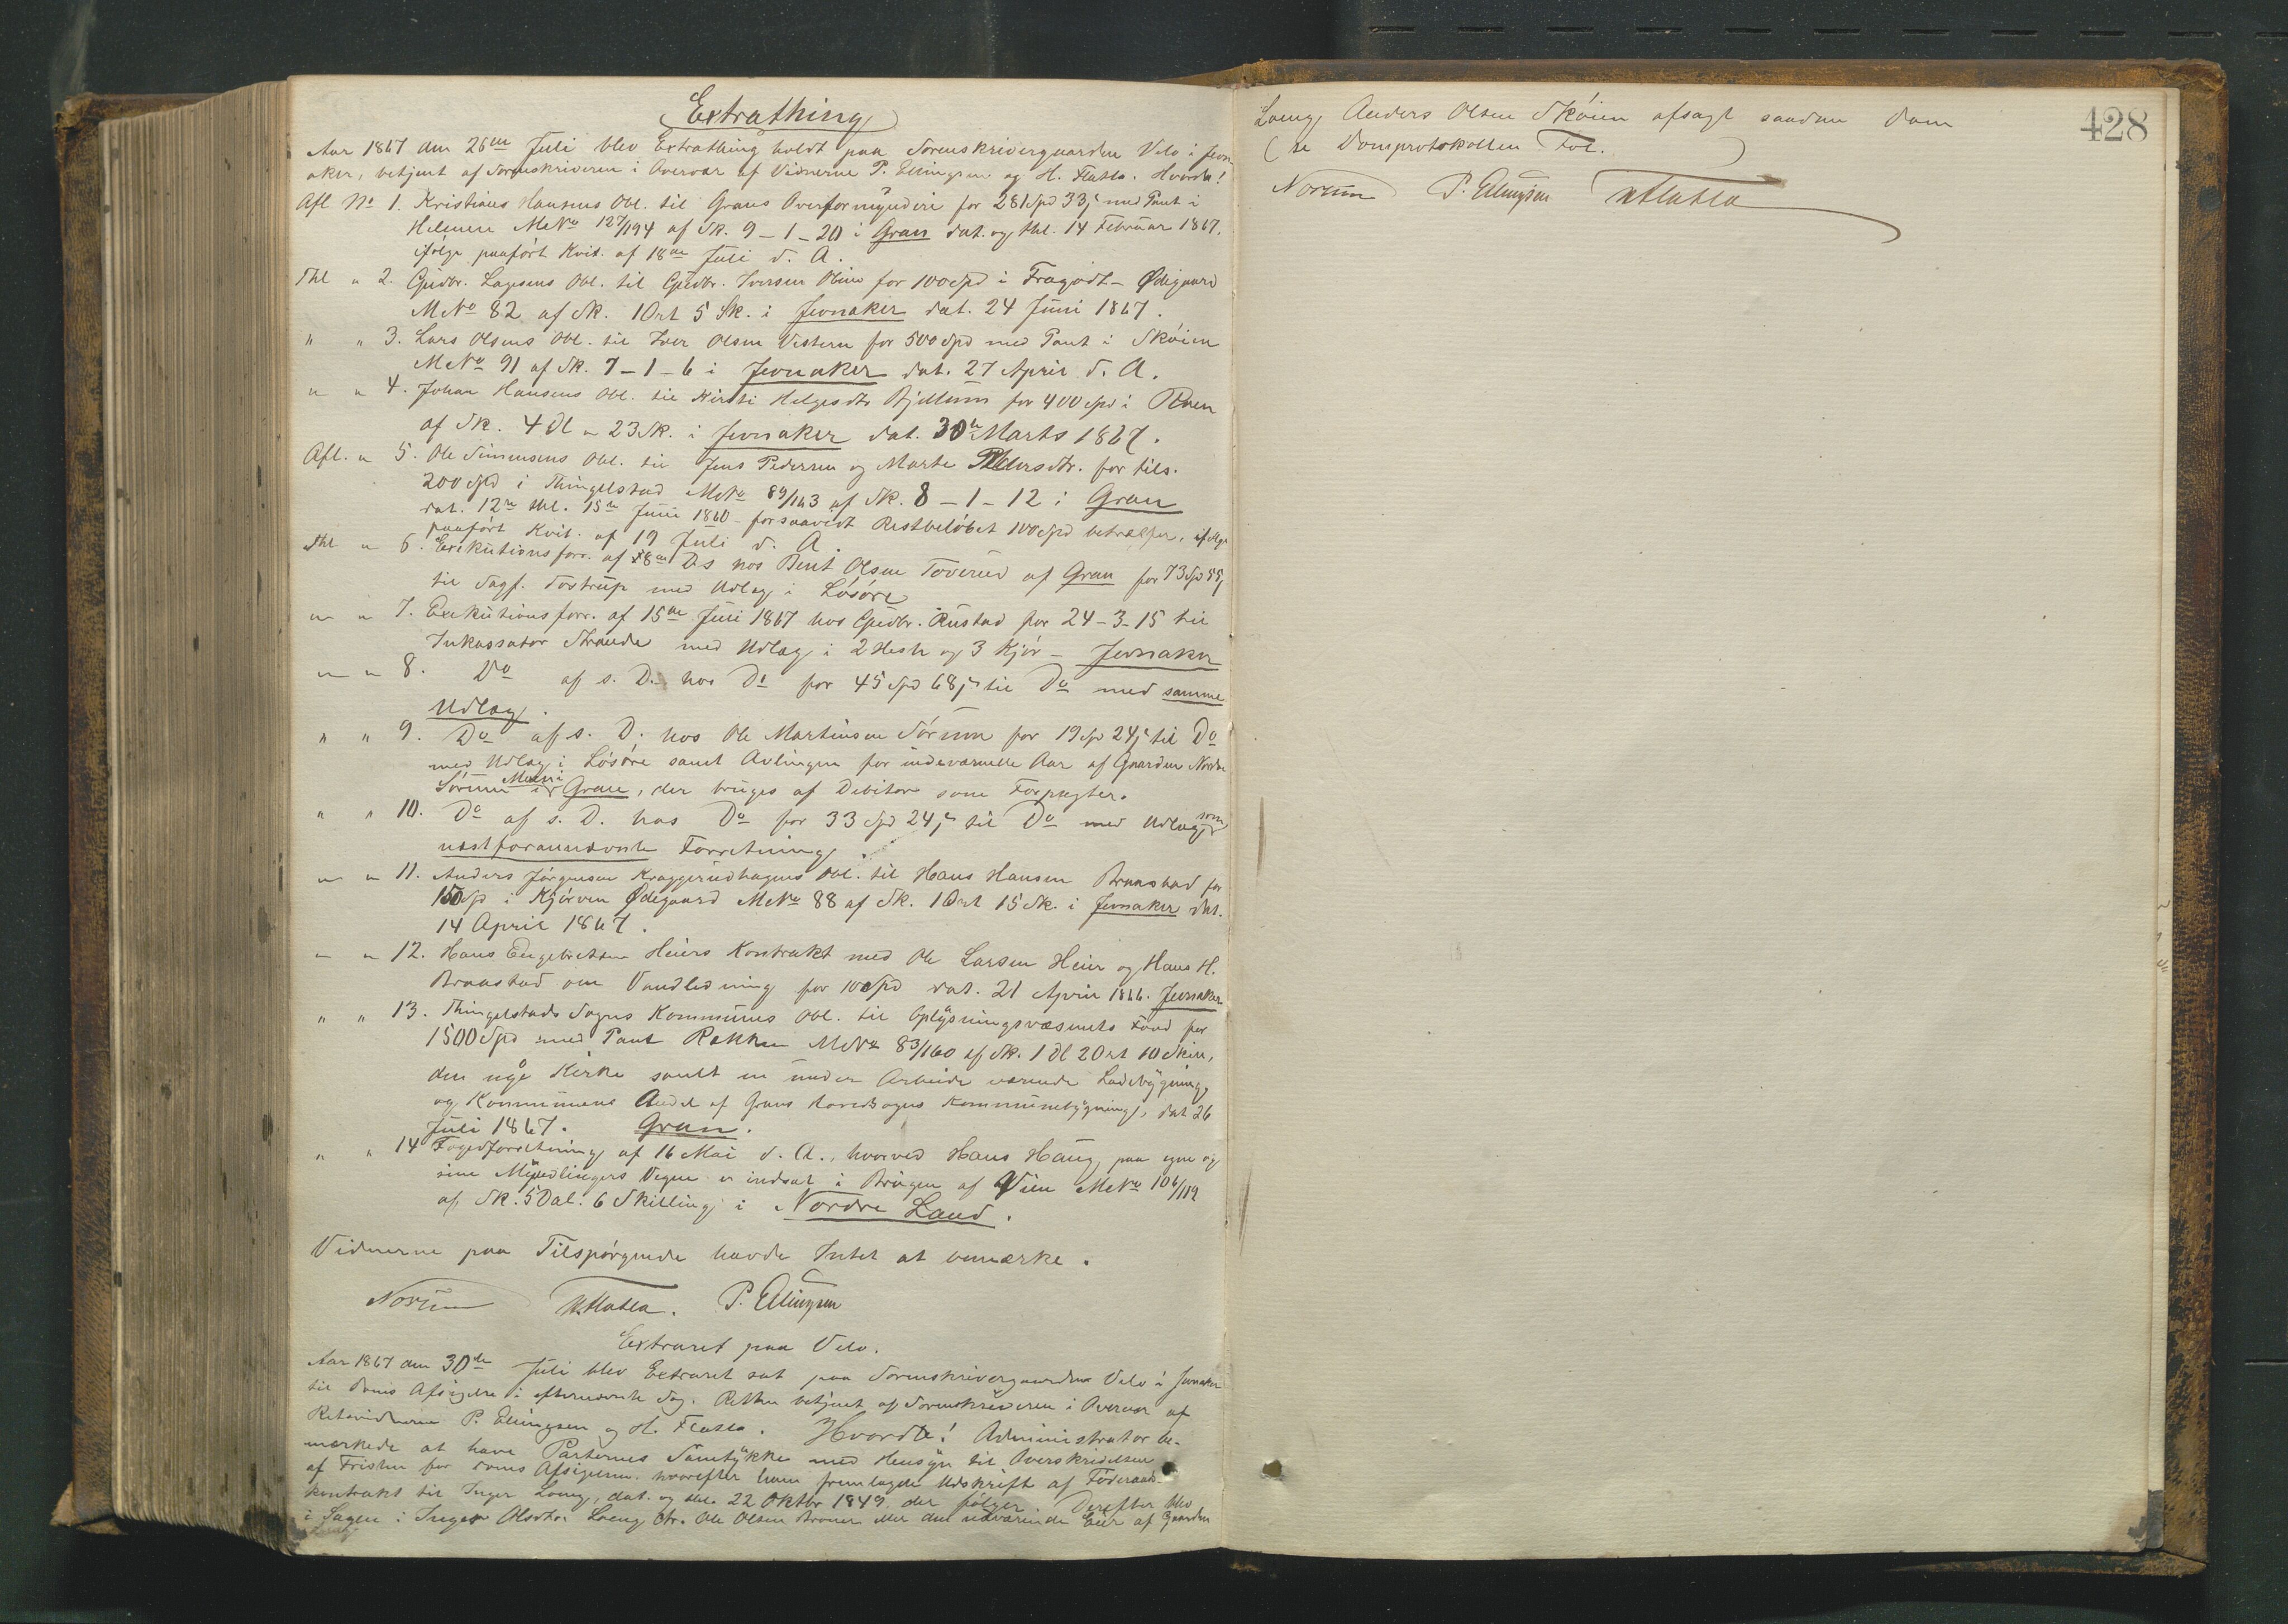 Extrathing
Aar 1867 den 26de Juli blev Extrathing holdt paa Sorenskrivergaarden Velo i Jevn-
aker, betjent af Sorenskriveren i Overvær af Vidnerne P. Ellingsen og H. Flatla. Hvorda!
Afl. No 1. Kristians Hansens Obl. til Grans Overformynderi for 281 Spd 33 s med Pant i
MNo 127/194 af Sk. 9-1-20 i Gran dat. og thl. 14 Februar 1867,
ifølge paaført Kvit. af 18de Juli d. A.
Thl " 2. Gudbr. Larsens Obl. til Gudbr. Iversen for 100 Spd i Fragodt-Ødegaard
MNo 82 af Sk. 1 Ort 5 Sk. i Jevnaker dat. 24 Juni 1867.
" " 3. Lars Olsens Obl. til Iver Olsen Vestern for 500 Spd med Pant i Skøien
MNo 91 af Sk. 7-1-6 i Jevnaker dat. 27 April d. A.
" " 4. Johan Hansens Obl. til Kirsti Helgesdtr Bjellum for 400 Spd i Roen
af Sk. 4 Dl " 23 Sk. i Jevnaker dat. 30te Marts 1867.
Afl. " 5. Ole Simensens Obl. til Jens Pedersen og Marte Pedersdtr. for tils.
200 Spd i Thingelstad MNo 89/163 af Sk. 8-1-12 i Gran
dat. 12te thl. 15de Juni 1860 - forsaavidt Restbeløbet 100 Spd betræffer, ifølge
paaført Kvit. af 19 Juli d. A.
Thl " 6. Exekutionsforr. af 18de Ds hos Bent Olsen Toverud af Gran for 73 Spd 55 s
til Sagf. Tostrup med Udlæg i Løsøre
" " 7. Exekutionsforr. af 15de Juni 1867 hos Gudbr. Rustad for 24-3-15 til
Inkassator Strande med Udlæg i 2 Heste og 3 Kjør - Jevnaker
" " 8. Do af s. D. hos Do for 45 Spd 68 s til Do med samme
Udlæg.
" " 9. Do af s. D. hos Ole Martinsen Sørum for 19 Spd 24 s til Do
med Udlæg i Løsøre samt Avlingen for indeværende Aar af Gaarden Nordre
Sørum i Gran, der bruges af Debitor som Forpagter.
" " 10. Do af s. D. hos Do for 33 Spd 24 s til Do med Udlæg som
næstforannævnte Forretning.
" " 11. Anders Jørgensen Kraggerudhagens Obl. til Hans Hansen Braastad for
150 Spd i Kjørven Ødegaard MNo 88 af Sk. 1 Ort 15 Sk. i Jevnaker dat.
14 April 1867.
" " 12. Hans Engebretsen Heiers Kontrakt med Ole Larsen Heier og Hans H.
Braastad om Vandledning for 10 Spd dat. 21 April 1866. Jevnaker
" " 13. Thingelstads Sogns Kommunes Obl. til Oplysningsvæsenets Fond for
1500 Spd med Pant Rækken MNo 83/160 af Sk. 1 Dl 2 Ort 10 Skill,
den nye Kirke samt en under Arbeide værende Ladebygning,
og Kommunens Andel af Grans Hovedsogns Kommunebygning, dat 26
Juli 1867. Gran.
" " 14 Fogedforretning af 16 Mai d. A., hvorved Hans Haug paa egne og
sine Myndlingers Vegne er indsat i Brugen af Vien MNo 106/119
af Sk. 5 Dal. 6 Skilling i Nordre Land.
Vidnerne paa Tilspørgende havde Intet at bemærke.
Norum H Flatla. P. Ellingsen
Extraret paa Velo.
Aar 1867 den 30de Juli blev Extraret sat paa Sorenskrivergaarden Velo i Jevnaker
til Doms Afsigelse i efternævnte Sag. Retten betjent af Sorenskriveren i Overvær af
Retsvidnerne P. Ellingsen og H. Flatla. Hvorda! Administrator be-
mærkede at have Parternes Samtykke med Hensyn til Overskridelsen
af Fristen for Doms Afsigelsen. hvorefter han fremlagde Udskrift af Føderaads-
kontrakt til Inger Loeng, dat. og thl. 22 Oktbr 1849, der følger. Derefter blev
i Sagen: Inger Olsdtr Loeng ctr. Ole Olsen Broner eller den nuværende Eier af Gaarden
428
Loeng Anders Olsen Skøien afsagt saadan Dom
(se Domprotokollen Fol. )
Norum P. Ellingsen H Flatla